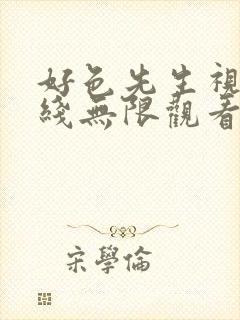 好色先生視
綫無限觀看
宋學倫